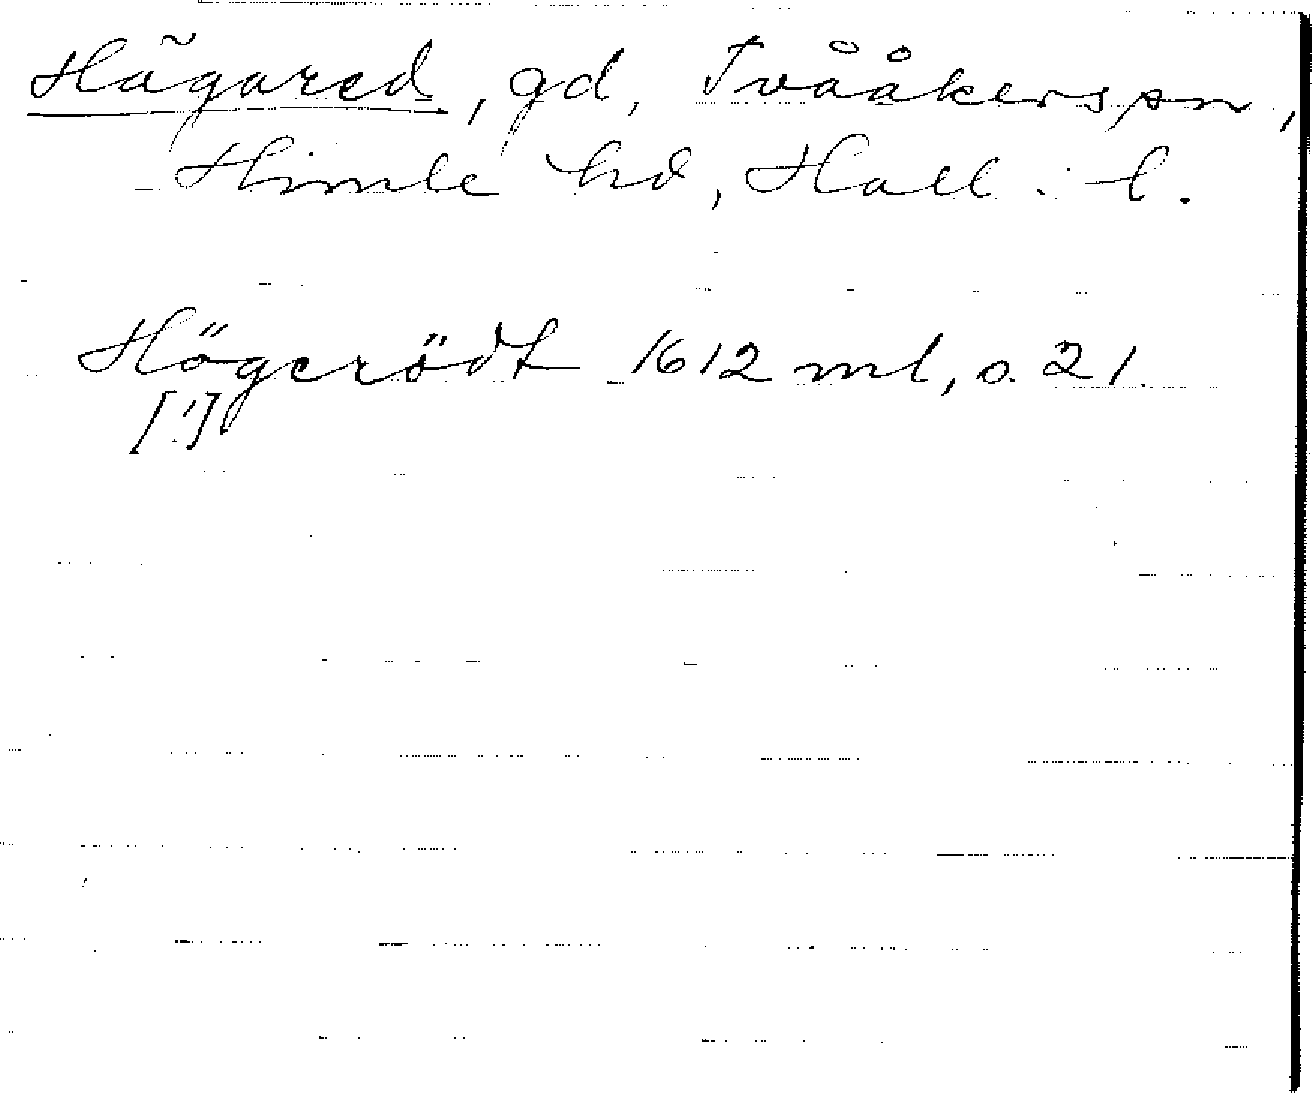 Hägared, gd, Tvååkers sn,
Himle hd, Hall. l.
Högerödt 1612 ml, s. 21.
[!]